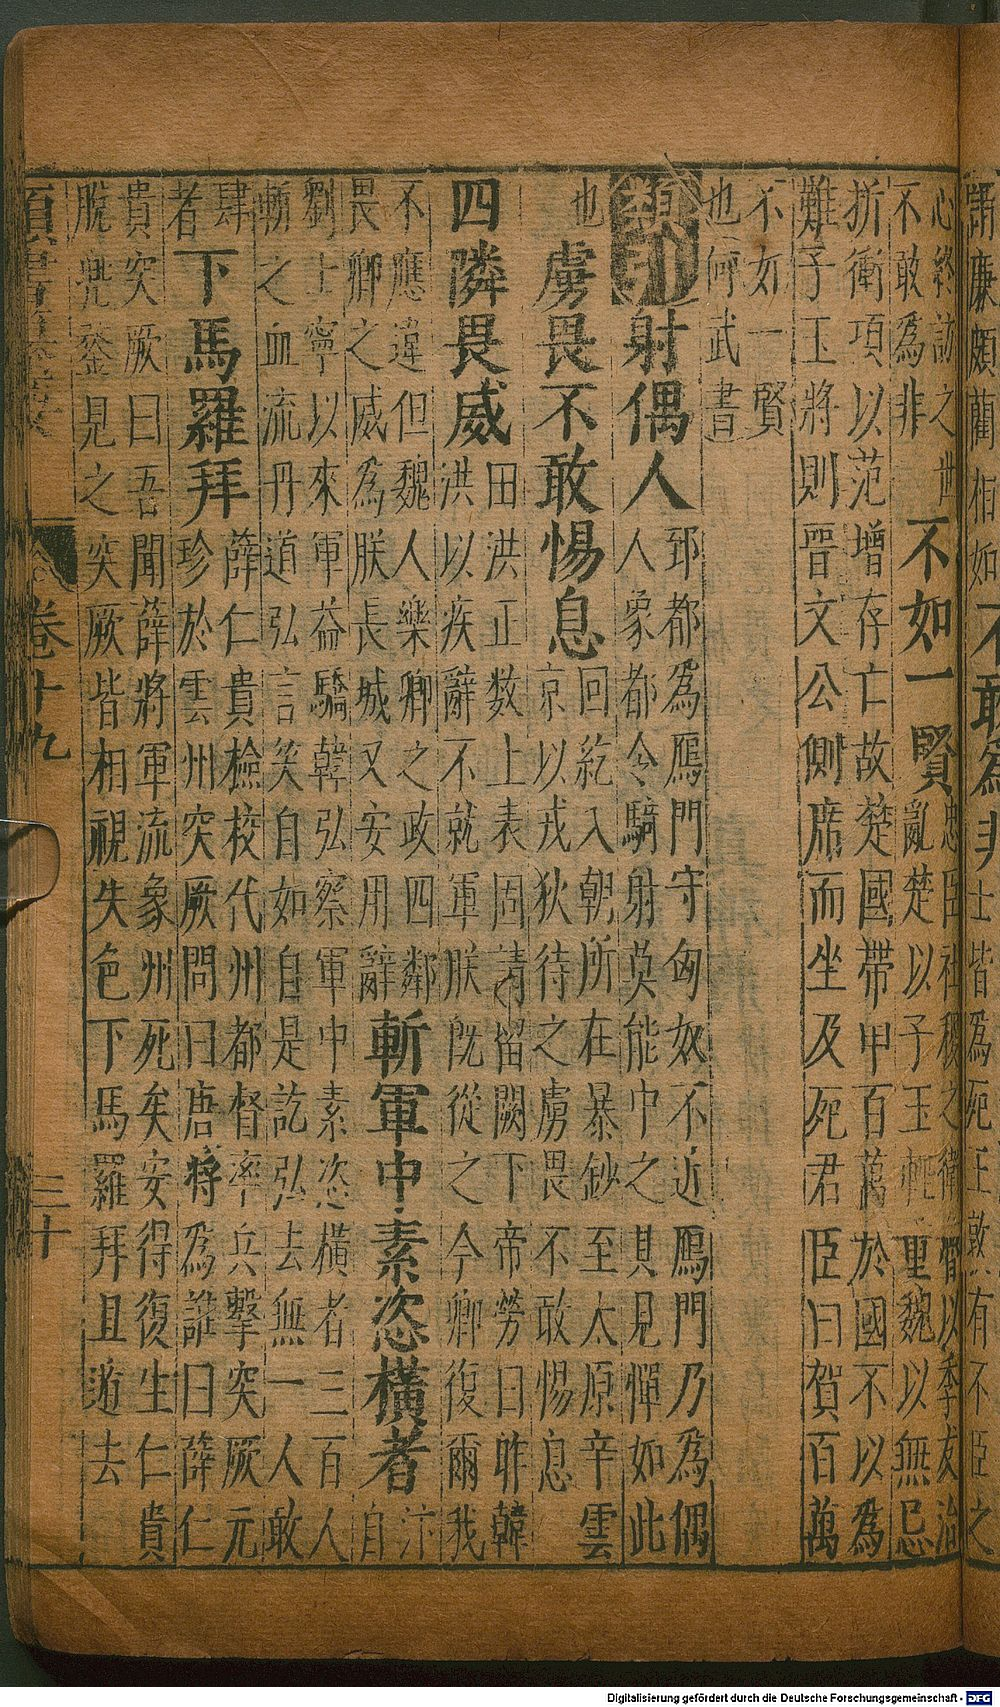 肅廉頗藺相如不敢為非士皆為死王敢有不臣之
心終訪之世
不敢為非
不如一賢
忠臣社稷之衛魯以季友治
亂楚以子玉輕重魏以無忌
折衝項以范增存亡故楚國帶甲百萬於國不以為
難子玉將則晉文公側席而坐及死君臣曰賀百萬
不如一賢
也何武書
類
射偶人
郅都為鴈門守匈奴不近鴈門乃為偶
人象都令騎射莫能中之其見憚如此
也
虜畏不敢惕息
回紇入朝所在暴鈔至太原辛雲
京以戎狄待之虜畏不敢惕息
四隣畏威
田洪正數上表固請留闕下帝勞曰昨韓
洪以疾辭不就軍朕既從之今卿復爾我
不應違但魏人樂卿之政四鄰
畏卿之威為朕長城又安用辭
斬軍中素恣橫者
汴
自
劉士寧以來軍益驕韓弘察軍中素恣橫者三百人
斬之血流丹道弘言笑自如自是訖弘去無一人敢
肆
者
下馬羅拜
薛仁貴檢校代州都督率兵擊突厥元
珍於雲州突厥問曰唐將為誰曰薛仁
貴突厥曰吾聞薛將軍流象州死矣安得復生仁貴
脫兜鍪見之突厥皆相視失色下馬羅拜且遁去
卷十九
三十
Digitalisierung gefördert durch die Deutsche Forschungsgemeinschaft - DFG